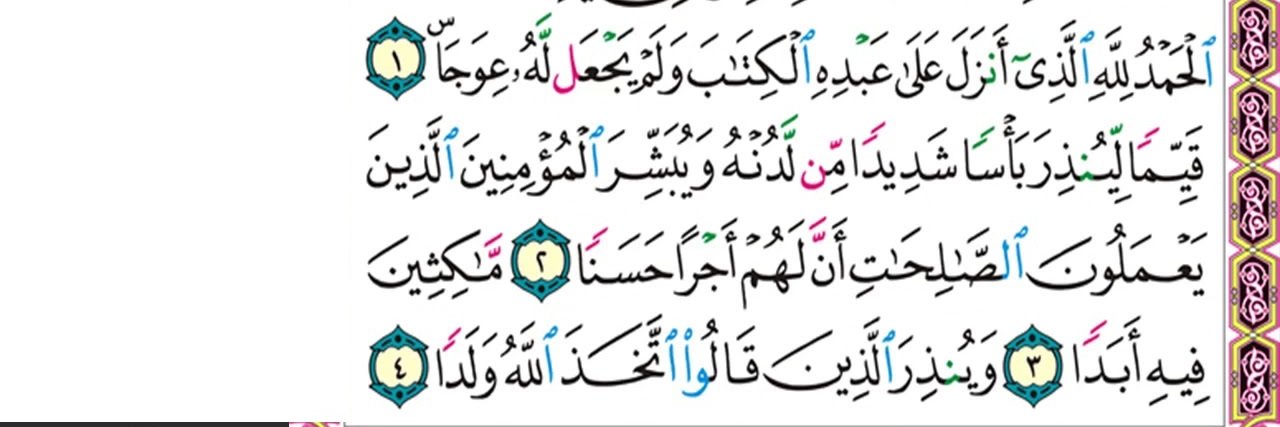 ٱلْحَمْدُ لِلَّهِ ٱلَّذِىٓ أَنزَلَ عَلَىٰ عَبْدِهِ ٱلْكِتَٰبَ وَلَمْ يَجْعَل لَّهُۥ عِوَجَاۜ ١
قَيِّمًا لِّيُنذِرَ بَأْسًا شَدِيدًا مِّن لَّدُنْهُ وَيُبَشِّرَ ٱلْمُؤْمِنِينَ ٱلَّذِينَ
يَعْمَلُونَ ٱلصَّٰلِحَٰتِ أَنَّ لَهُمْ أَجْرًا حَسَنًا ٢ مَّٰكِثِينَ
فِيهِ أَبَدًا ٣ وَيُنذِرَ ٱلَّذِينَ قَالُوا۟ ٱتَّخَذَ ٱللَّهُ وَلَدًا ٤